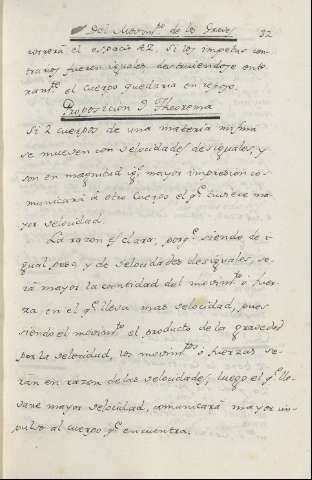 Del Movim.to de los Graves 32
correrá el espacio AZ. Si los impetus con-
trarios fueren iguales destruiendose ente-
ram.te el cuerpo quedaria en reposo.
Proposicion 9 Theorema
Si 2 cuerpos de una materia misma
se mueven con velocidades desiguales, y
son en magnitud ig.s mayor impresion co-
municará á otro Cuerpo el q.e tuviere ma-
yor velocidad.
La razon es clara, porq.e siendo de i-
gual peso, y de velocidades desiguales, se-
rá mayor la cantidad del movim.to ó fuer-
za en el q.e lleva mas velocidad, pues
siendo el movim.to el producto de la gravedad
por la velocidad, los movim.tos ó fuerzas se-
rán en razon de las velocidades, luego el q.e lle-
vare mayor velocidad, comunicará mayor im-
pulso al cuerpo q.e encuentra.